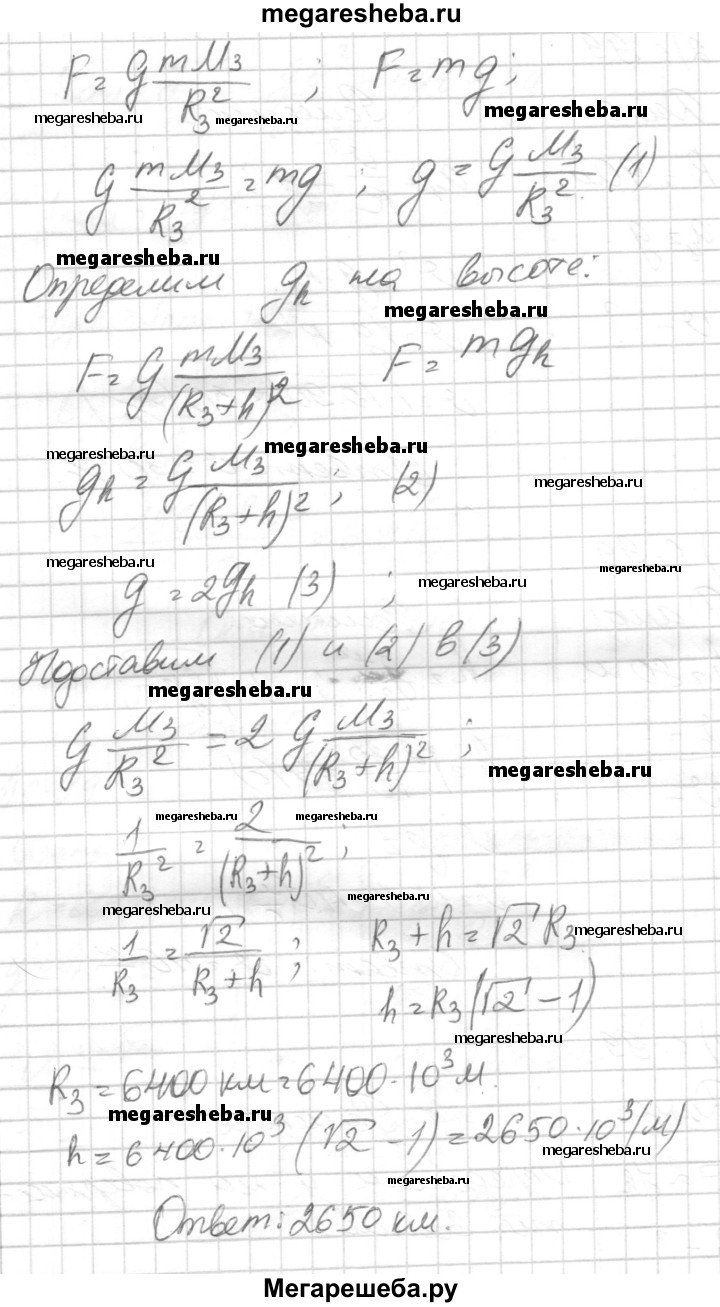 megaresheba.ru
F = G mM₃/R₃² ; F = mg;
megaresheba.ru megaresheba.ru megaresheba.ru
G mM₃/R₃² = mg ; g = G M₃/R₃² (1)
megaresheba.ru
Определим gh на высоте:
megaresheba.ru
F = G mM₃/(R₃+h)² F = mgh
megaresheba.ru megaresheba.ru
gh = G M₃/(R₃+h)² ; (2)
megaresheba.ru
megaresheba.ru megaresheba.ru
g = 2gh (3) ;
megaresheba.ru
Подставим (1) и (2) в (3)
megaresheba.ru
G M₃/R₃² = 2 G M₃/(R₃+h)² ;
megaresheba.ru
megaresheba.ru megaresheba.ru
1/R₃² = 2/(R₃+h)² ;
megaresheba.ru
megaresheba.ru
1/R₃ = √2/(R₃+h) ; R₃+h = √2 R₃
megaresheba.ru
h = R₃(√2 - 1)
megaresheba.ru
R₃ = 6400 км = 6400·10³ м.
megaresheba.ru
h = 6400·10³ (√2 - 1) = 2650·10³ (м)
megaresheba.ru
megaresheba.ru
Ответ: 2650 км.
Мегарешеба.ру